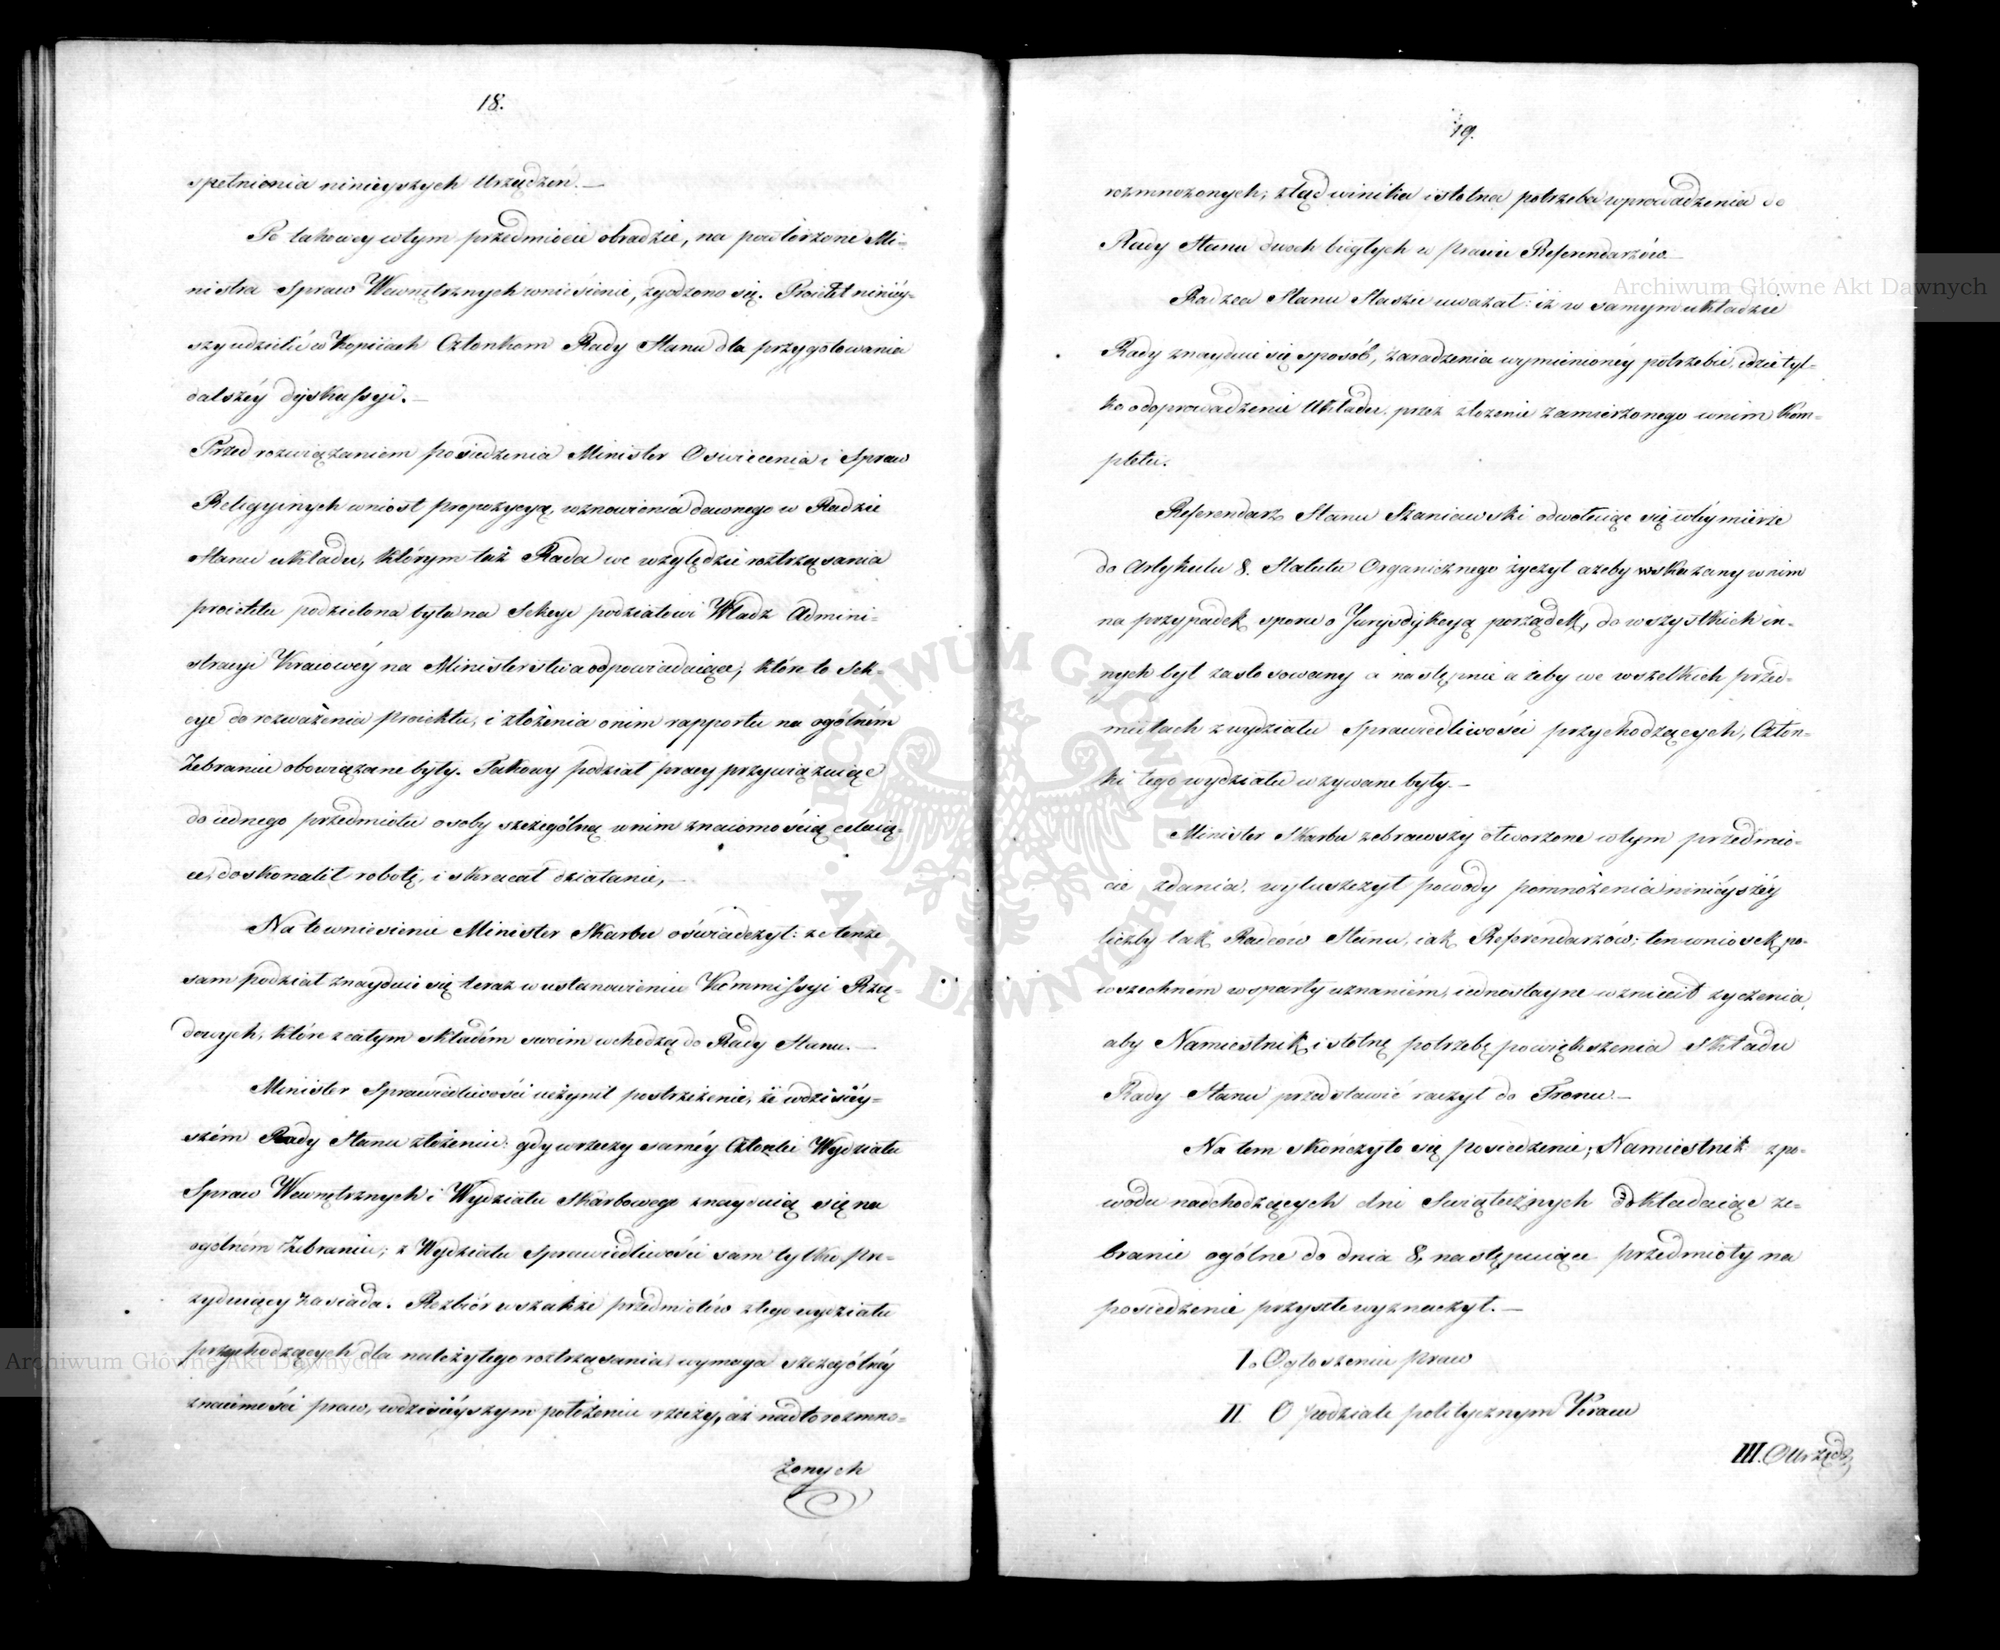 18.
spełnienia ninieyszych Urządzeń. —
Po takowey w tym przedmiocie obradzie, na powtórzone Mi-
nistra Spraw Wewnętrznych wniesienie, zgodzono się. Proiekt niniéy-
szy udzielić w Kopiiach Członkom Rady Stanu dla przygotowania
dalszéy dyskussyi. —
Przed rozwiązaniem posiedzenia Minister Oswiecenia i Spraw
Religyinych wniósł propozycyą, wznowienia dawnego w Radzie
Stanu układu, którym taż Rada we względzie roztrząsania
proiektu podzielona była na Sekcye podziałowi Władz Admini-
stracyi Kraiowéy na Ministerstwa odpowiadaiące; które to Sek-
cye do rozważenia proiektu, i złożenia o nim rapportu na ogólném
Zebraniu obowiązane były. Takowy podział pracy przywiązuiąc
do iednego przedmiotu osoby szczególną w nim znaiomością celuią-
ce, doskonalił robotę, i skracał działanie, —
Na to wniesienie Minister Skarbu oświadczył: że tenże
sam podział znayduie się teraz w ustanowieniu Kommissyi Rzą-
dowych, które z całym składém swoim wchodzą do Rady Stanu. —
Minister Sprawiedliwości uczynił postrzeżenie, że w dzisiéy-
szém Rady Stanu złożeniu: gdy w rzeczy saméy Członki Wydziału
Spraw Wewnętrznych i Wydziału Skarbowego znayduią się na
ogólném Zebraniu; z Wydziału Sprawiedliwości sam tylko pre-
zyduiący zasiada. Rozbiór wszakże przedmiotów z tego wydziału
przychodzących dla należytego roztrząsania, wymaga szczególnéy
znaiomości praw, w dzisiéyszym położeniu rzeczy, aż nadto rozmno-
żonych
19.
rozmnożonych; ztąd wynika istotna potrzeba wprowadzenia do
Rady Stanu dwoch biegłych w prawie Referendarzów. —
Radzca Stanu Staszic uważał: iż w samym układzie
Rady znayduie się sposób, zaradzenia wymienionéy potrzebie, idzie tyl-
ko o doprowadzenie Układu przez złożenie zamierzonego w nim Kom-
pletu.
Referendarz Stanu Szaniawski odwołuiąc się w téy mierze
do Artykułu 8. Statutu Organicznego życzył ażeby wskazany w nim
na przypadek sporu o Jurysdykcyą porządek, do wszystkich in-
nych był zastosowany a następnie ażeby we wszelkich przed-
miotach z wydziału Sprawiedliwości przychodzących, Człon-
ki tego wydziału wzywane były. —
Minister Skarbu zebrawszy otworzone w tym przedmio-
cie zdania, wyłuszczył powody pomnożenia niniéyszéy
liczby tak Radców Stanu, iak Referendarzów; ten wniosek po-
wszechném wsparty uznaniém, iednostayne wzniecił życzenia,
aby Namiestnik istotną potrzebę powiększenia składu
Rady Stanu przedstawić raczył do Tronu. —
Na tem skończyło się posiedzenie; Namiestnik z po-
wodu nadchodzących dni Świątecznych dokładaiąc ze-
branie ogólne do dnia 8, następuiące przedmioty na
posiedzenie przyszłe wyznaczył. —
I. Ogłoszeniu praw
II O podziale politycznym Kraiu
III. O Urzęda
Archiwum Główne Akt Dawnych
Archiwum Główne Akt Dawnych
ARCHIWUM GŁÓWNE AKT DAWNYCH